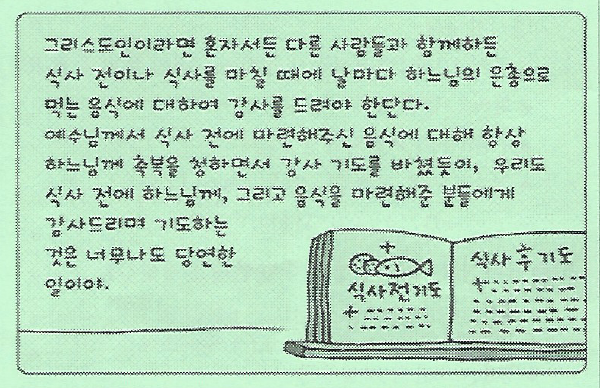 그리스도인이라면 혼자서든 다른 사람들과 함께하든
식사 전이나 식사를 마칠 때에 날마다 하느님의 은총으로
먹는 음식에 대하여 감사를 드려야 한단다.
예수님께서 식사 전에 마련해주신 음식에 대해 항상
하느님께 축복을 청하면서 감사 기도를 바쳤듯이, 우리도
식사 전에 하느님께, 그리고 음식을 마련해준 분들에게
감사드리며 기도하는
것은 너무나도 당연한
일이야.
식사전기도
식사 후 기도